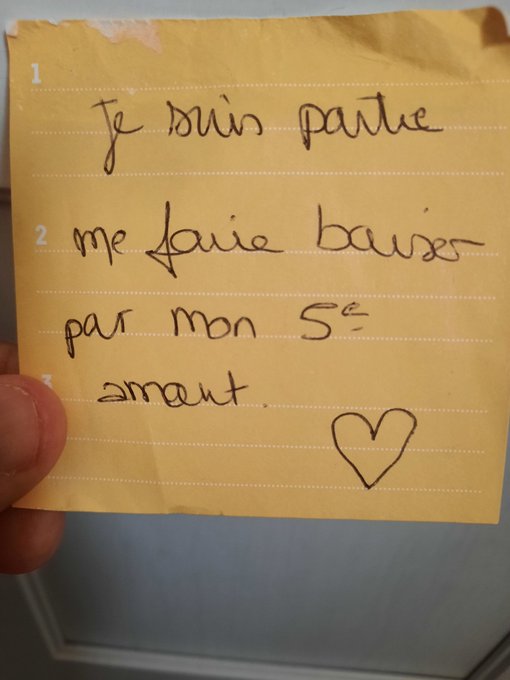 1
Je suis partie
2 me faire baiser
par mon 5e
3
amant.